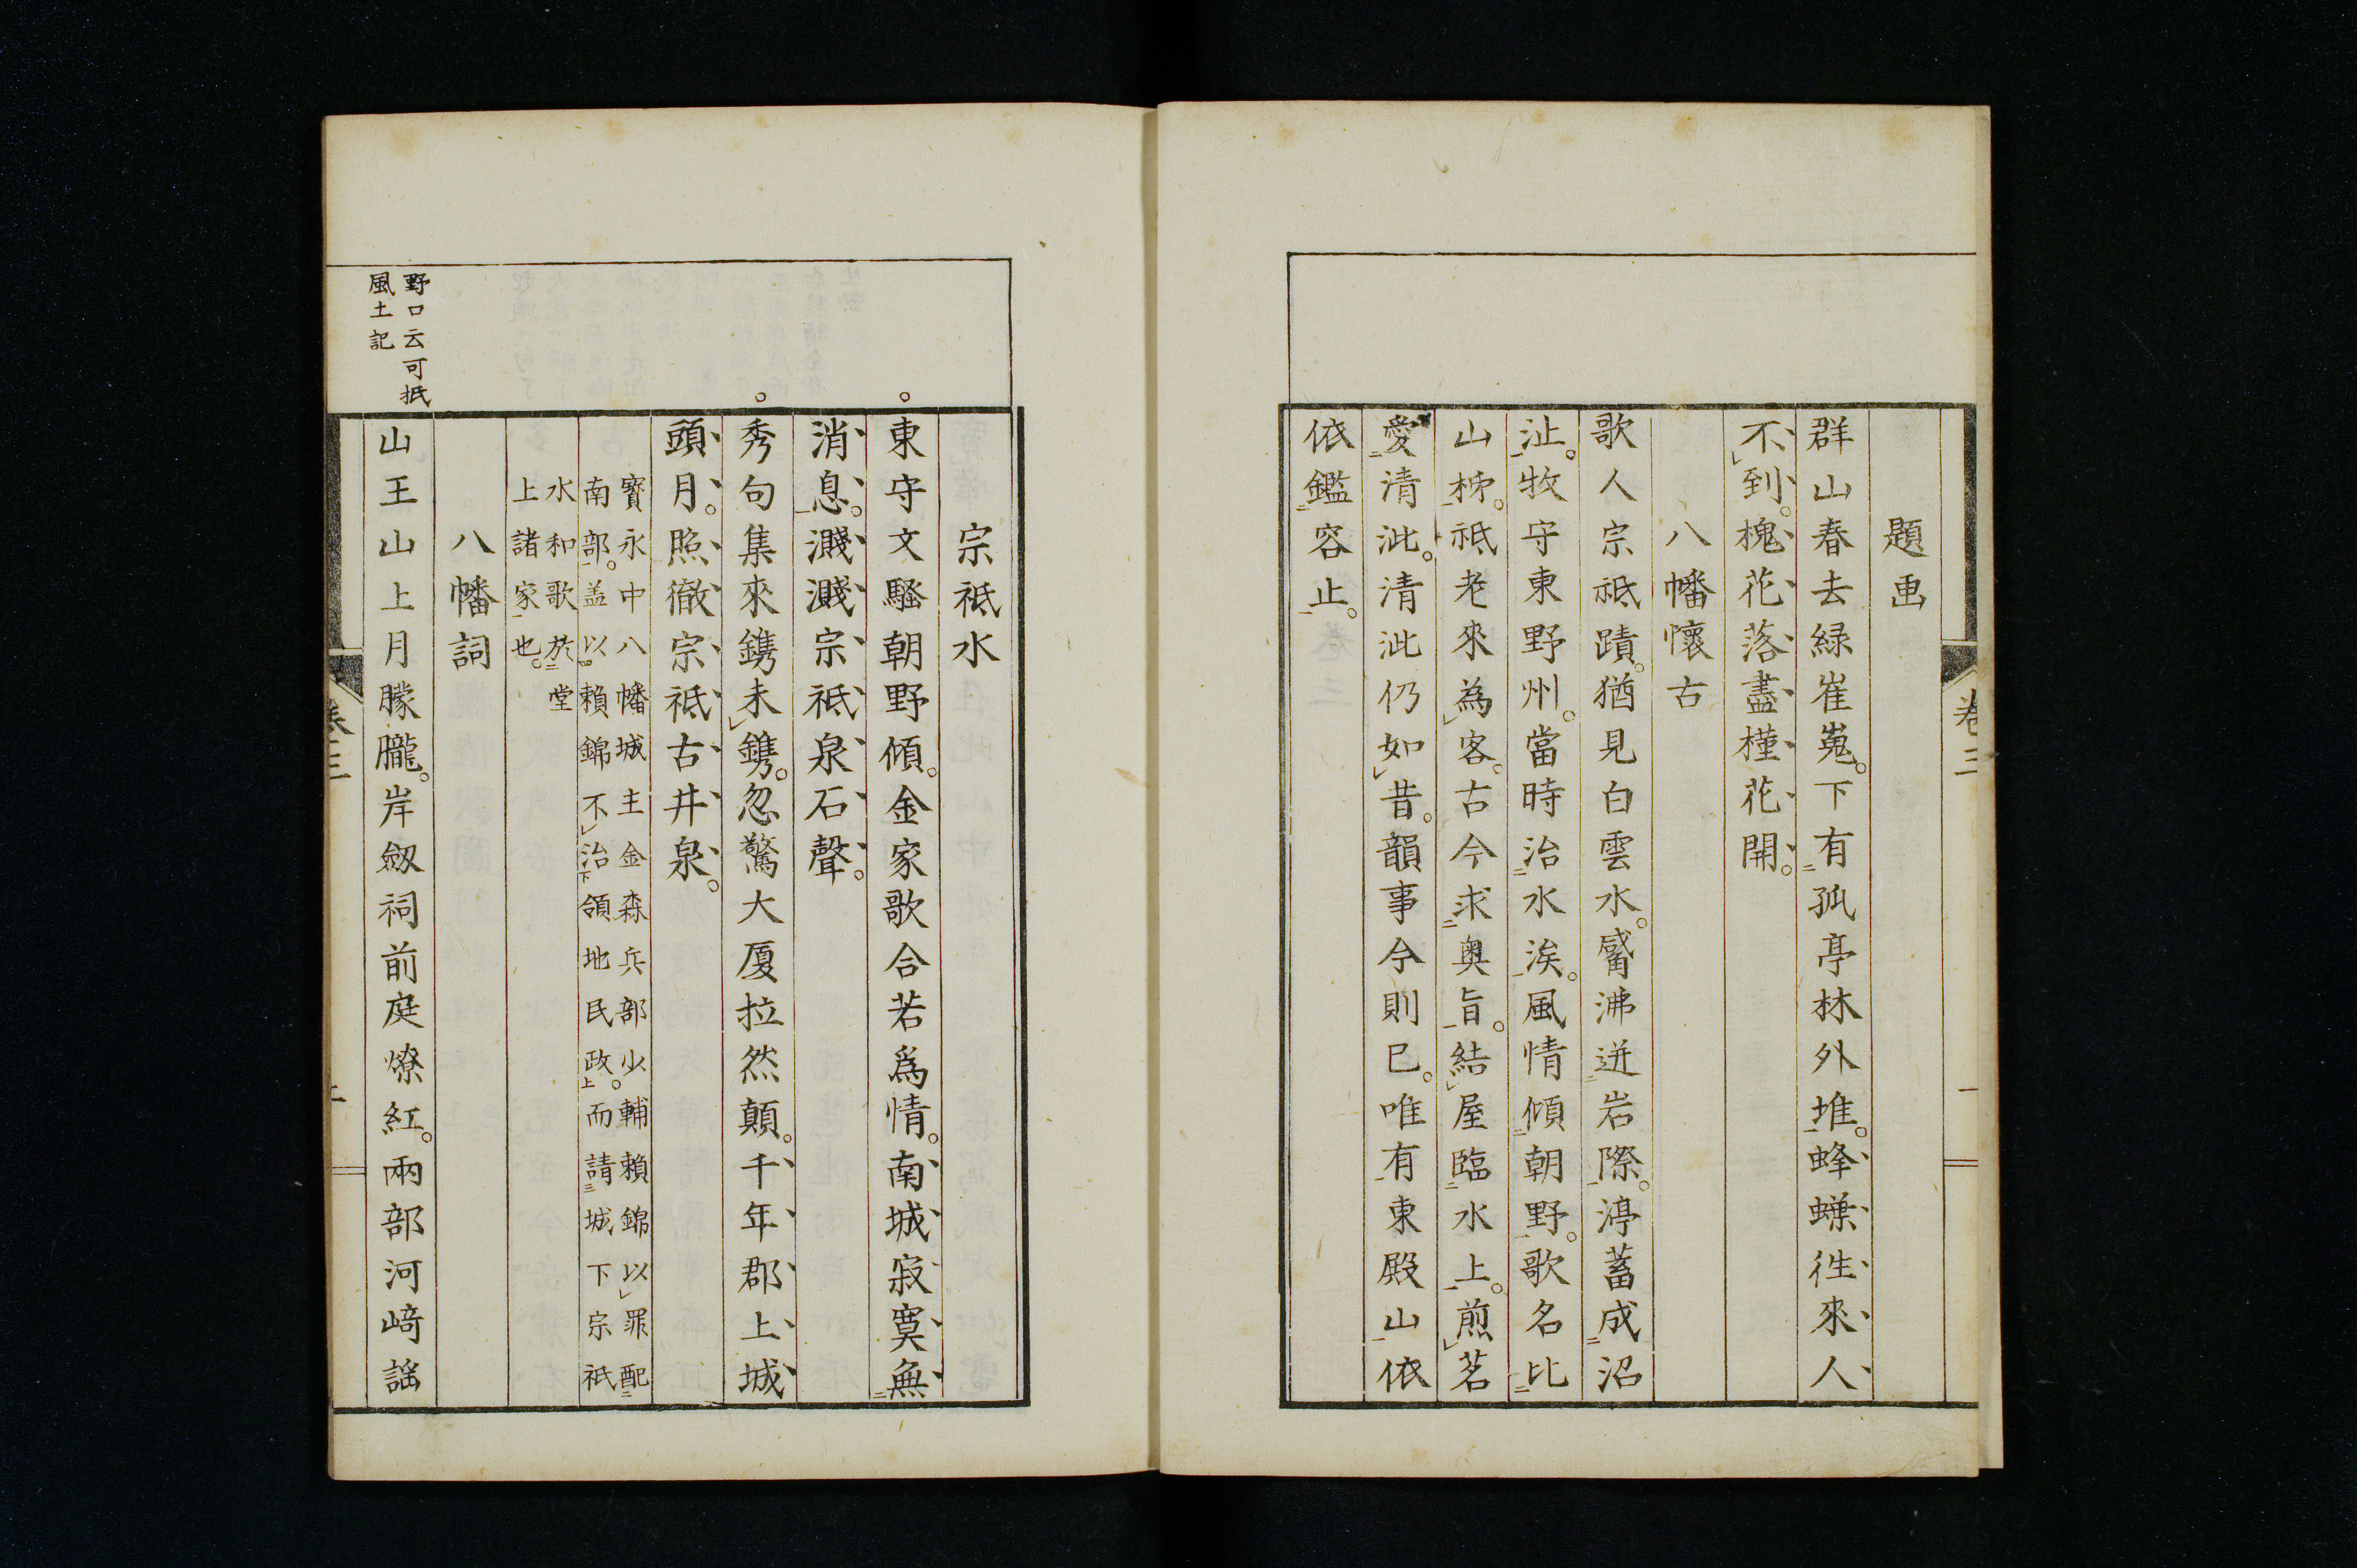 卷三
一
題画
群山春去緑崔嵬。下有孤亭林外堆。蜂蠊徃來人
不到。槐花落盡槿花開。
八幡懷古
歌人宗祗蹟。猶見白雲水。觱沸迸岩際。渟蓄成沼
沚。牧守東野州。當時治水涘。風情傾朝野。歌名比
山柹。祗老來為客。古今求奥旨。結屋臨水上。煎茗
愛清泚。清泚仍如昔。韻事今則已。唯有東殿山依
依鑑容止。
宗祗水
東守文騷朝野傾。金家歌合若爲情。南城寂寞無
消息。濺濺宗祗泉石聲。
秀句集來鐫未鐫。忽驚大厦拉然顛。千年郡上城
頭月。照徹宗祗古井泉。
寳永中八幡城主金森兵部少輔賴錦以罪配
南部。盖以賴錦不治領地民政。而請城下宗祇
水和歌於堂
上諸家也。
八幡詞
野口云可抵
風土記
山王山上月朦朧。岸劔祠前庭燎紅。兩部河﨑謡
卷三